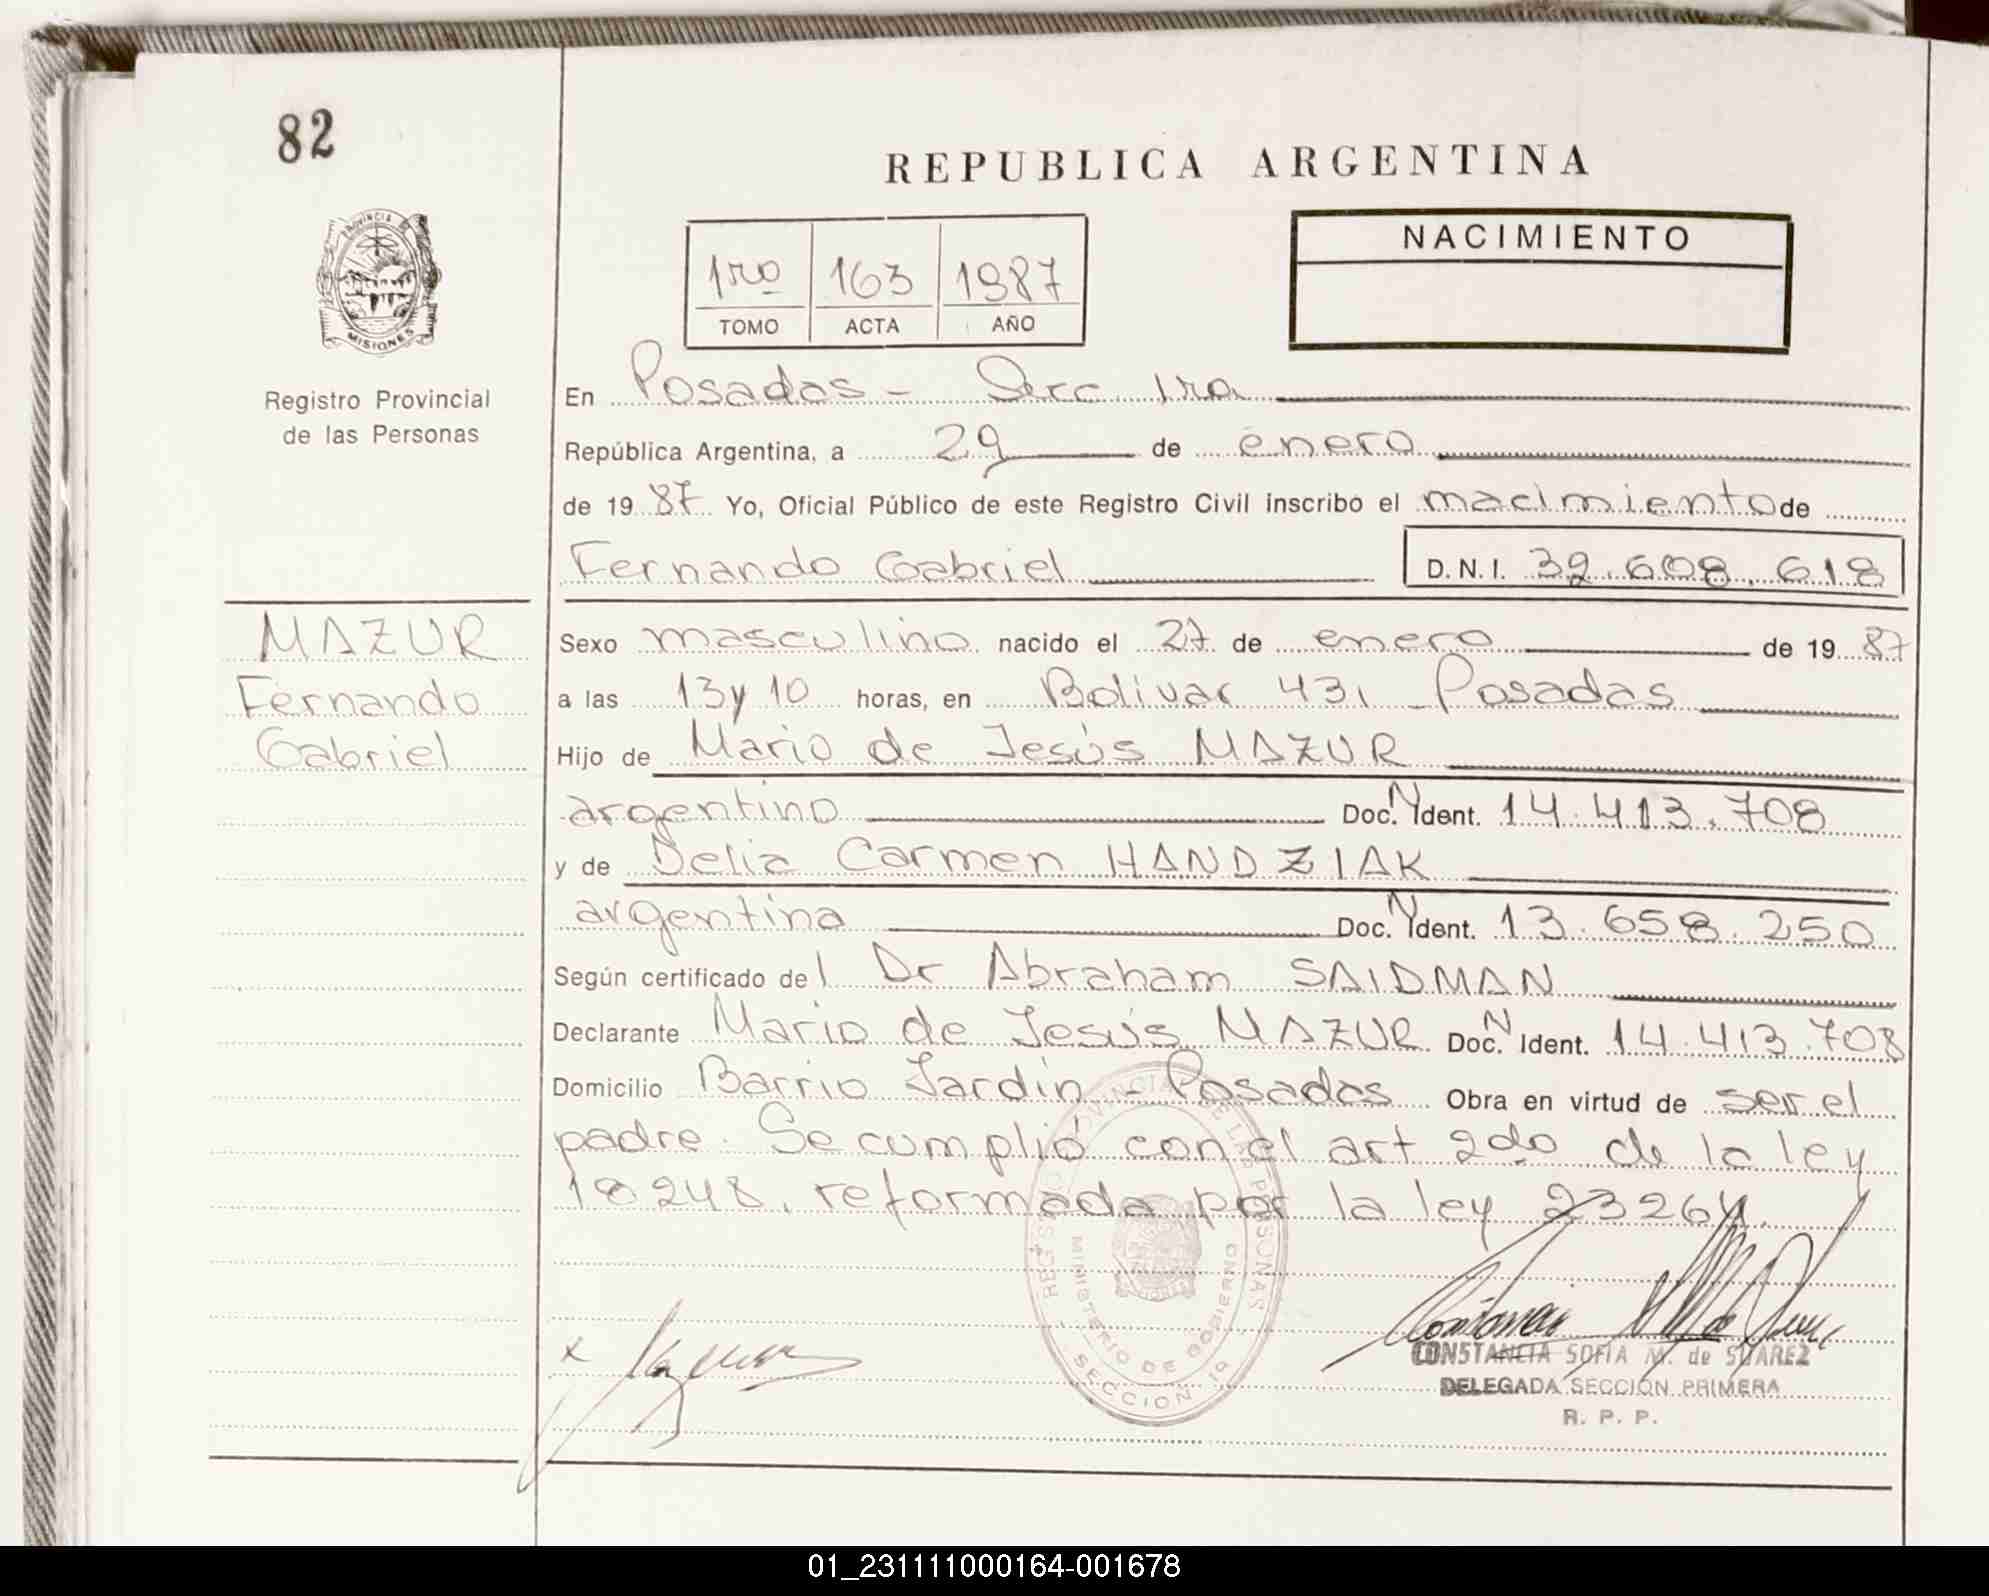 82
REPUBLICA ARGENTINA
PROVINCIA DE
MISIONES
Registro Provincial
de las Personas
1ro 163 1987
TOMO ACTA AÑO
NACIMIENTO
En Posadas - Secc 1ra
República Argentina, a 29 de enero
de 19 87 Yo, Oficial Público de este Registro Civil inscribo el nacimiento de
Fernando Gabriel D.N.I. 32.608.618
MAZUR
Fernando
Gabriel
Sexo masculino nacido el 27 de enero de 19 87
a las 13 y 10 horas, en Bolivar 431 - Posadas
Hijo de Mario de Jesús MAZUR
argentino Doc. N Ident. 14.413.708
y de Delia Carmen HANDZIAK
argentina Doc. N Ident. 13.658.250
Según certificado del Dr Abraham SAIDMAN
Declarante Mario de Jesús MAZUR Doc. N Ident. 14.413.708
Domicilio Barrio Jardín - Posadas Obra en virtud de ser el
padre. Se cumplió con el art 2do de la ley
18248, reformada por la ley 23264.
REGISTRO PROVINCIAL DE LAS PERSONAS
MINISTERIO DE GOBIERNO
SECCION 1a
x
CONSTANCIA SOFIA M. de SUAREZ
DELEGADA SECCION PRIMERA
R. P. P.
01_231111000164-001678